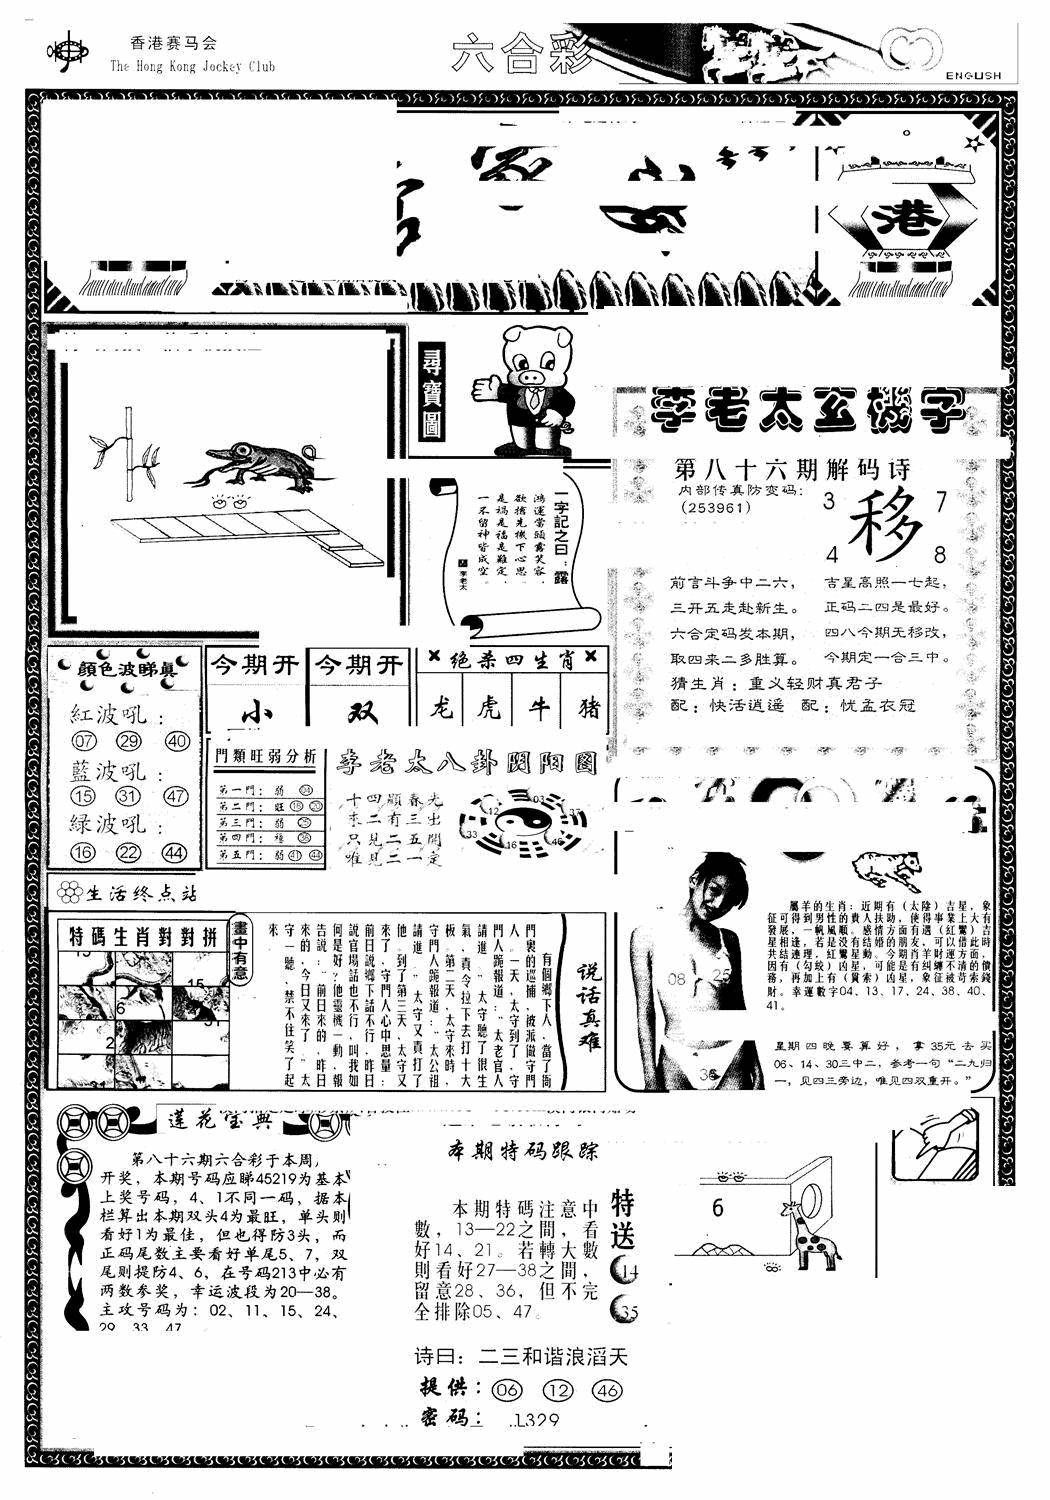 香港赛马会
The Hong Kong Jockey Club
六合彩
ENGLISH
港
尋寶圖
李老太玄機字
第八十六期解码诗
内部传真防变码:
(253961)
3 7
移
4 8
前言斗争中二六， 吉星高照一七起，
三开五走赴新生。 正码二四是最好。
六合定码发本期， 四八今期无移改，
取四来二多胜算。 今期定一合三中。
猜生肖：重义轻财真君子
配：快活逍遥 配：忧孟衣冠
一字記之曰：露
鴻運當頭露笑容，
欲擒先機下心思，
是禍是福是難定，
一不留神皆成空。
李老太
顏色波睇真
紅波吼：
07 29 40
藍波吼：
15 31 47
緑波吼：
16 22 44
今期开 今期开
小 双
绝杀四生肖
龙 虎 牛 猪
門類旺弱分析
第一門：弱 04
第二門：旺 18 20
第三門：弱 25
第四門：穩 36
第五門：弱 41 44
李老太八卦阴阳图
十四顯春光
未二有三出
只見二五開
唯見二一定
12 03 37
33 16 46
生活终点站
特碼生肖對對拼
畫中有意
15
6
2
说话真难
有個鄉下人，當了衙
門裏的巡捕，被派做守門
人。一天，太守到了，守
門人跪報道：“太老官人
請進。”太守聽了很生
氣，責令拉下去打十大
板。第二天，太守來時，
守門人跪報道：“太公祖
請進。”太守又責打了
他。到了第三天，太守又
來了，守門人心中思量：
前日説鄉下話不行，昨日
説官場話也不行，叫我如
何是好？他靈機一動，報
告説：“前日來的，昨日
來的，今日又來了。”太
守一聽，禁不住笑了起
來
08 25
36
屬羊的生肖：近期有（太陰）吉星，象
征可得到男性的貴人扶助，使得事業上大有
發展，一帆風順。感情方面有遇（紅鸞）吉
星相逢，若是没有結婚的朋友，可以借此時
共结連理，紅鸞星動。今期肖羊財運方面，
因有（勾絞）凶星，可能是有纠纏不清的債
務，再加上有（貫索）凶星，象征被苛索錢
財。幸運數字04、13、17、24、38、40、
41。
星期四晚要算好，拿35元去买
06、14、30三中二，参考一句“二九归
一，见四三旁边，唯见四双重开。”
莲花宝典
第八十六期六合彩于本周
开奖，本期号码应睇45219为基本
上奖号码，4、1不同一码，据本
栏算出本期双头4为最旺，单头则
看好1为最佳，但也得防3头，而
正码尾数主要看好单尾5、7，双
尾则提防4、6，在号码213中必有
两数参奖，幸运波段为20—38。
主攻号码为：02、11、15、24、
29 33 47
本期特码跟踪
本期特碼注意中
數，13—22之間，看
好14、21。若轉大數
則看好27—38之間，
留意28、36，但不完
全排除05、47。
特送
14
35
诗曰：二三和谐浪滔天
提供：06 12 46
密码：1329
6